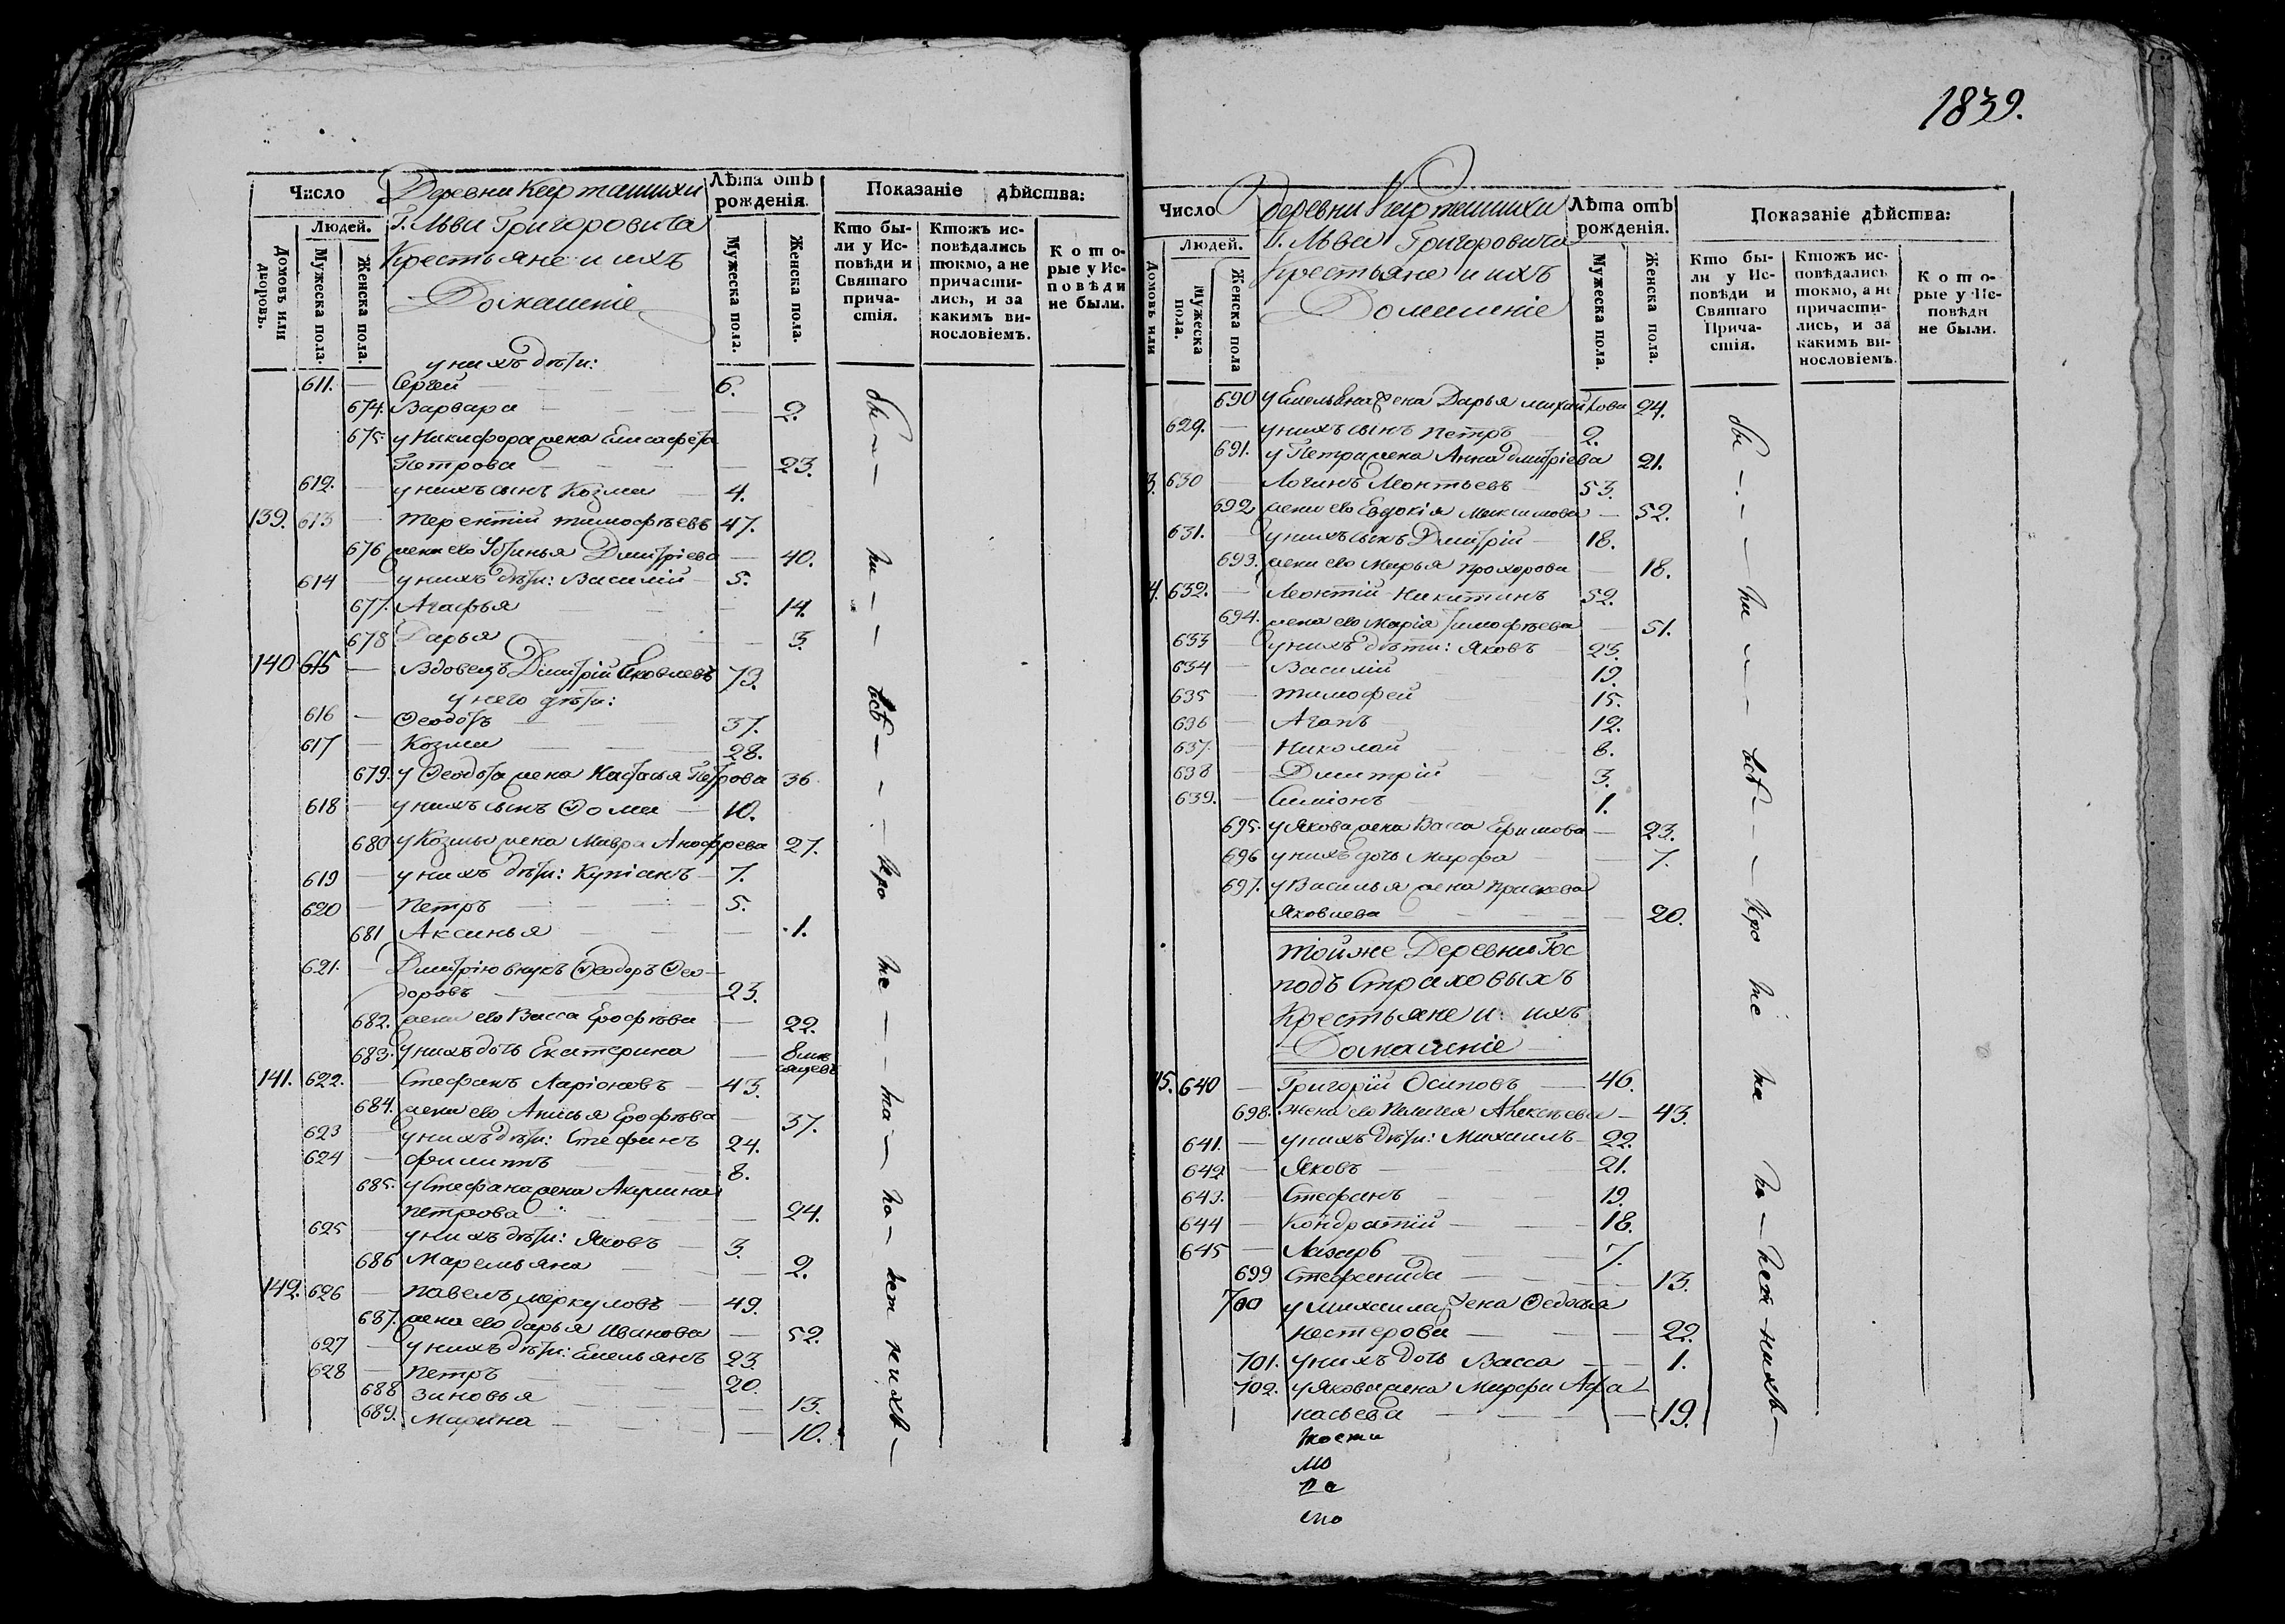 1839.
Число
Деревни Карташихи
Лѣта отъ рожденія.
Показаніе дѣйства:
Людей.
Г. Льва Григоровича
Крестьяне и ихъ
Домашніе
Домовъ или дворовъ.
Мужеска пола.
Женска пола.
Мужеска пола.
Женска пола.
Кто бы-
ли у Ис-
повѣди и
Святаго
прича-
стія.
Ктожъ ис-
повѣдались
токмо, а не
причасти-
лись, и за
какимъ ви-
нословіемъ.
Кото-
рые у Ис-
повѣди
не были.
у нихъ дѣти:
611. Сергей 6.
674. Варвара 2.
675. у Никифора жена Елисафета
Петрова 23.
612. у нихъ сынъ Козма 4.
139. 613 Терентій Тимофѣевъ 47.
676 жена его Устинья Дмитріева 40.
614 у нихъ дѣти: Василій 5.
677. Агафья 14.
678 Дарья 3.
140 615 Вдовецъ Дмитрій Яковлевъ 73.
у него дѣти:
616 Ѳеодотъ 37.
617 Козма 28.
679. у Ѳеодота жена Настасья Петрова 36
618 у нихъ сынъ Ѳома 10.
680 у Козмы жена Мавра Анофрева 27.
619 у нихъ дѣти: Купріанъ 7.
620 Петръ 5.
681 Аксинья 1.
621. Дмитрію внукъ Ѳеодоръ Ѳео-
доровъ 23.
682. жена его Васса Ерофѣва 22.
683. у нихъ дочь Екатерина 8 мѣ
сяцевъ
141. 622. Стефанъ Ларіоновъ 43.
684. жена его Анисья Ерофѣва 37.
623 у нихъ дѣти: Стефанъ 24.
624 Филиппъ 8.
685. у Стефана жена Акулина
Петрова 24.
625 у нихъ дѣти: Яковъ 3.
686 Маремьяна 2.
142. 626 Павелъ Меркуловъ 49.
687. жена его Дарья Иванова 52.
627 у нихъ дѣти: Емельянъ 23.
628 Петръ 20.
688 Зиновья 13.
689. Марина 10.
Число
Деревни Карташихи
Лѣта отъ рожденія.
Показаніе дѣйства:
Людей.
Г. Льва Григоровича
Крестьяне и ихъ
Домашніе
Домовъ или
Мужеска пола.
Женска пола
Мужеска пола.
Женска пола.
Кто бы-
ли у Ис-
повѣди и
Святаго
Прича-
стія.
Ктожъ ис-
повѣдались
токмо, а не
причасти-
лись, и за
какимъ ви-
нословіемъ.
Кото-
рые у Ис-
повѣди
не были.
690 у Емельяна жена Дарья Михайлова 24.
629. у нихъ сынъ Петръ 2.
691. у Петра жена Анна Дмитріева 21.
3. 630 Логинъ Леонтьевъ 53.
692 жена его Евдокія Максимова 52.
631. у нихъ сынъ Дмитрій 18.
693. жена его Марья Прохорова 18.
4. 632. Леонтій Никитинъ 52.
694. жена его Марія Тимофѣева 51.
633 у нихъ дѣти: Яковъ 23.
634 Василій 19.
635 Тимофей 15.
636 Агапъ 12.
637. Николай 8.
638 Дмитрій 3.
639. Симіонъ 1.
695. у Якова жена Васса Ефимова 23.
696 у нихъ дочь Марфа 7.
697. у Василья жена Праскева
Яковлева 20.
Тойже Деревни Гос
подъ Страховыхъ
Крестьяне и ихъ
Домашніе
45. 640 Григорій Осиповъ 46.
698. Жена его Пелагея Алексѣева 43.
641. у нихъ дѣти: Михаилъ 22.
642 Яковъ 21.
643. Стефанъ 19.
644 Кондратій 18.
645 Лазарь 7.
699 Стефанида 13.
700 у Михаила жена Ѳедосья
Нестерова 22.
701. у нихъ дочь Васса 1.
702. у Якова жена Марфа Афа
насьева 19.